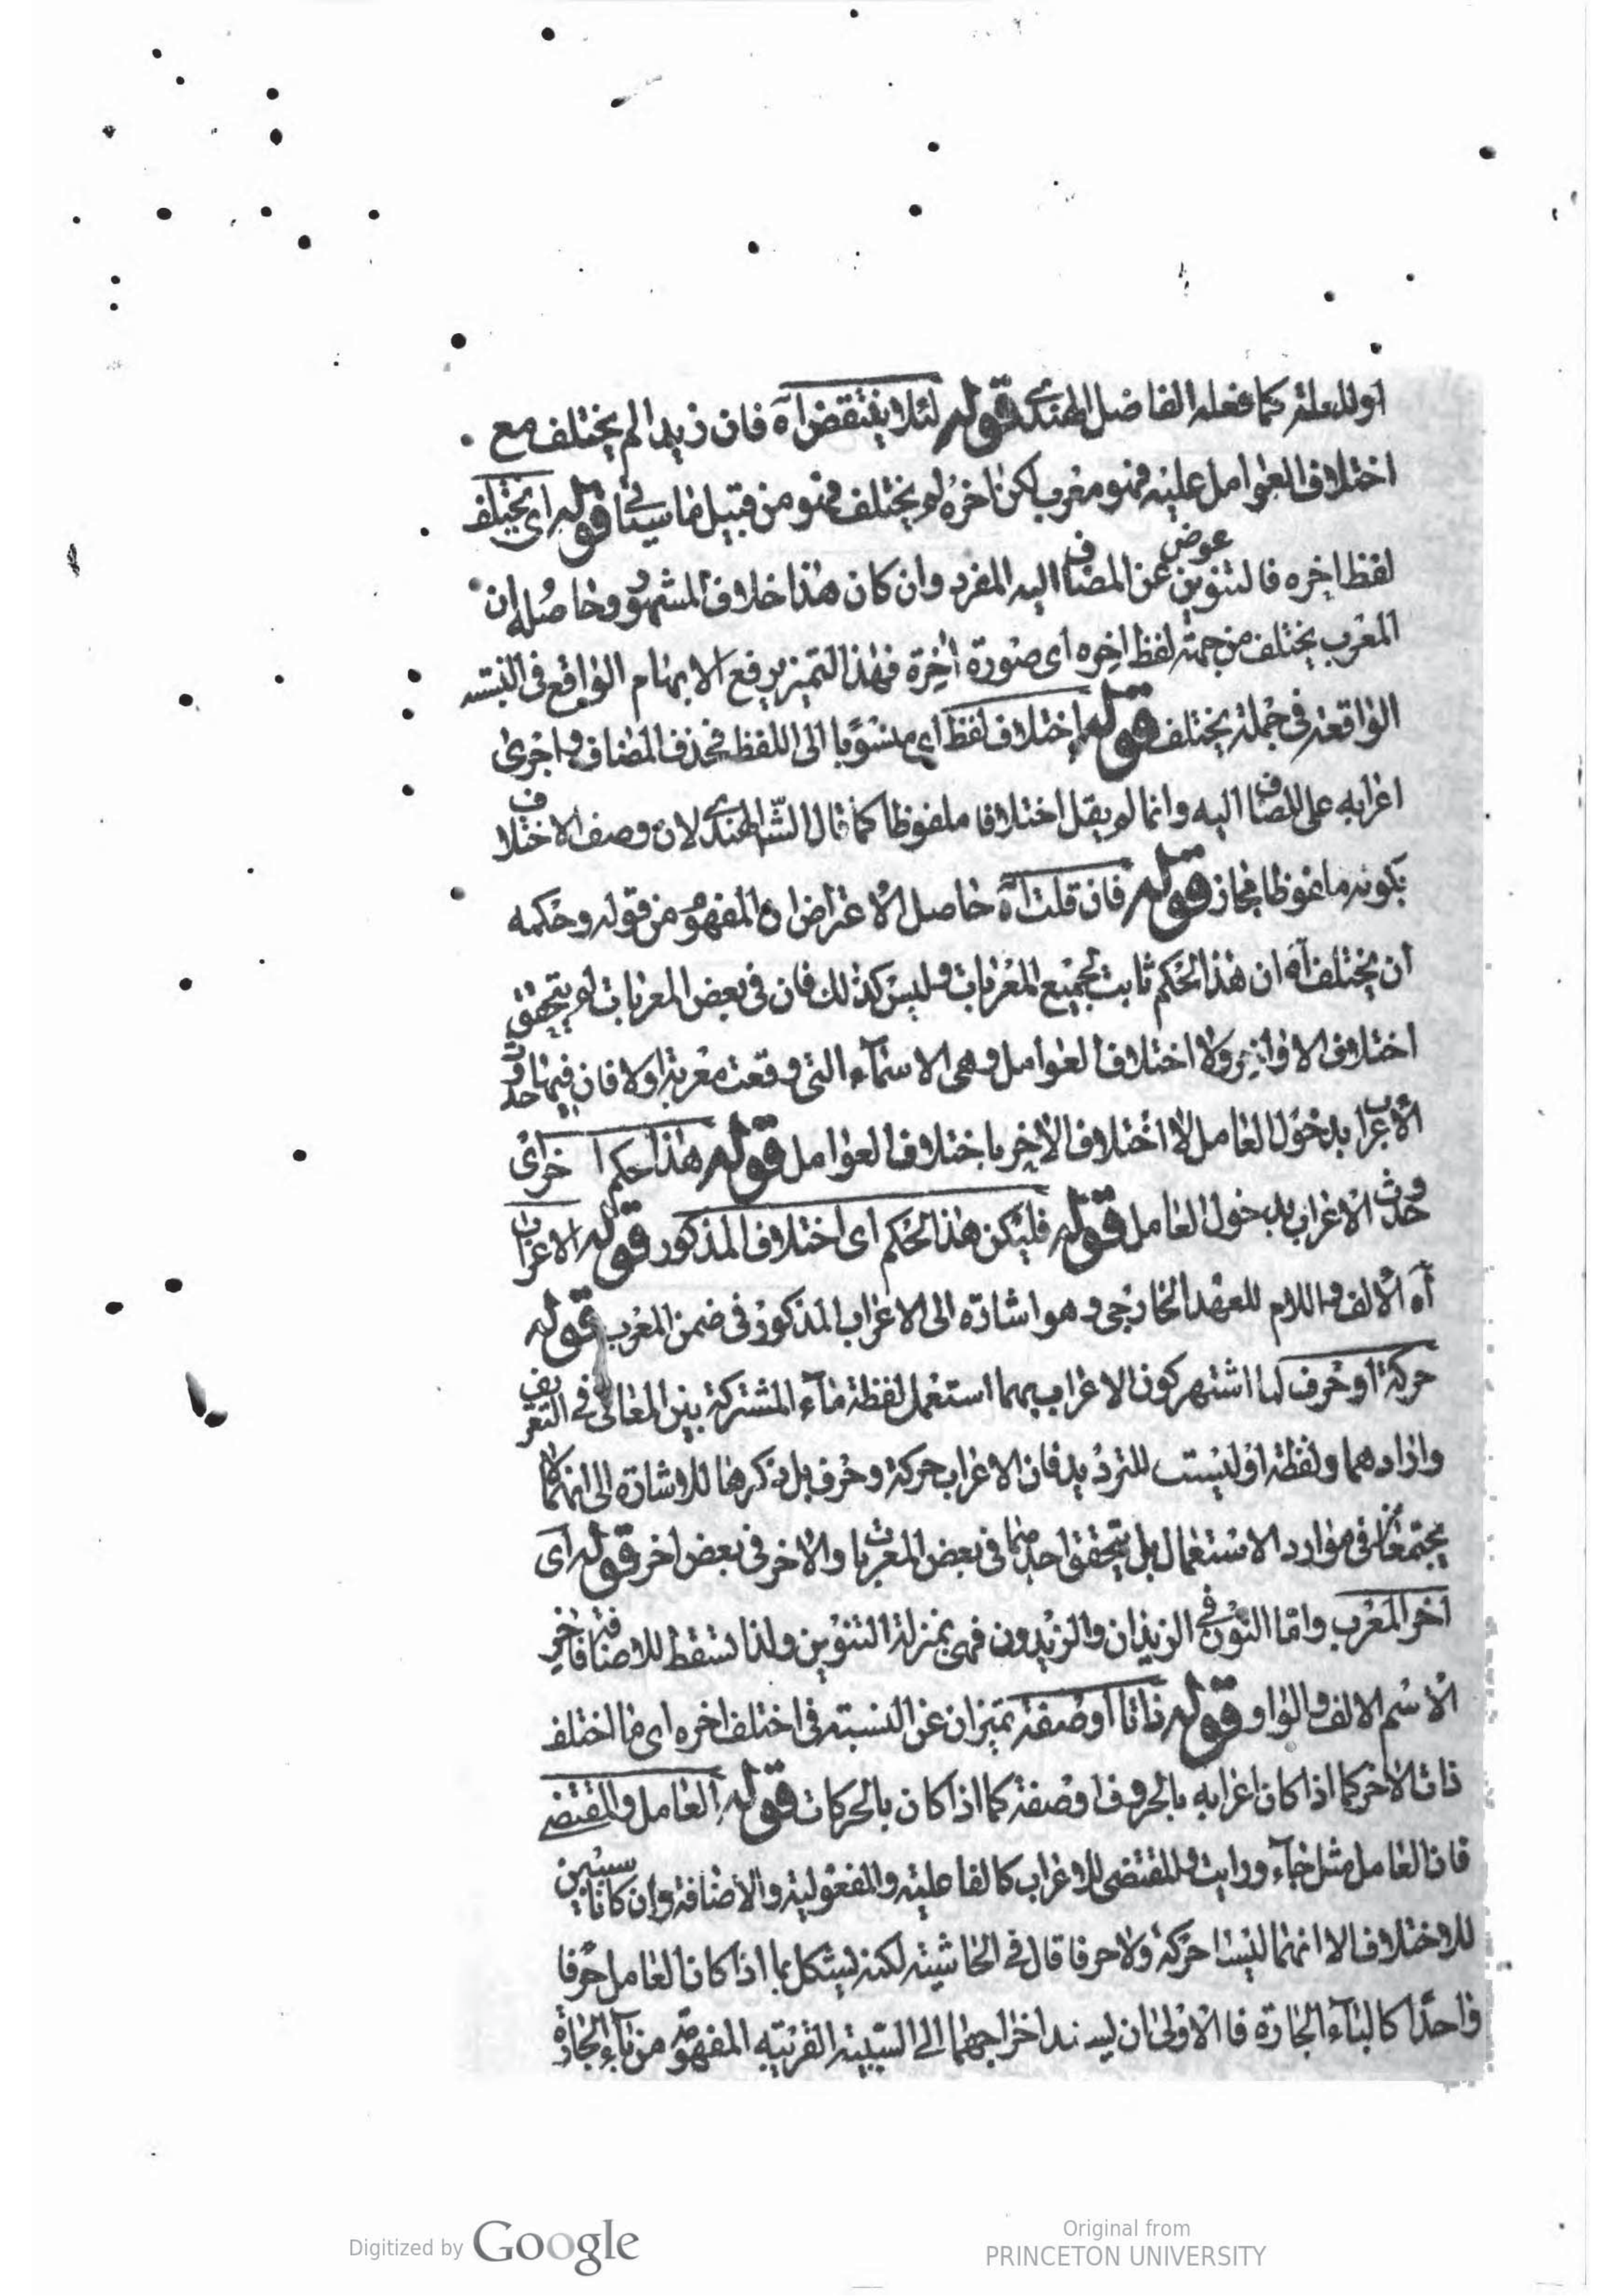 او للعلة كما فعله الفاضل الهندى قوله لئلا ينتقض آه فان زيدا لم يختلف مع
اختلاف العوامل عليه فهو معرب لكن اخره لم يختلف فهو من قبيل ما سيأتى قوله اى يختلف
لفظ اخره فالتنوين عوض عن المضاف اليه المفرد وان كان هذا خلاف المشهور وحاصله ان
المعرب يختلف من جهة لفظ اخره اى صورة اخره فهذا التميز يرفع الابهام الواقع فى النسبة
الواقعة فى جملة يختلف قوله اختلاف لفظ اى منسوبا الى اللفظ فحذف المضاف واجرى
اعرابه على المضاف اليه وانما لم يقل اختلافا ملفوظا كما قال الشا الهندى لان وصف الاختلاف
بكونه ملفوظا مجاز قوله فان قلت آه حاصل الاعتراض ان المفهوم من قوله وحكمه
ان يختلف آه ان هذا الحكم ثابت لجميع المعربات وليس كذلك فان فى بعض المعربات لم يتحقق
اختلاف الاواخر ولا اختلاف العوامل وهى الاسماء التى وقعت معربة اولا فان فيها حدوث
الاعراب بدخول العامل لا اختلاف الاخر باختلاف العوامل قوله هذا حكم اخر اى
حدوث الاعراب بدخول العامل قوله فليكن هذا الحكم اى اختلاف المذكور قوله الاعراب
آه الالف واللام للعهد الخارجى وهو اشارة الى الاعراب المذكور فى ضمن المعرب قوله
حركة او حرف لما اشتهر كون الاعراب بهما استعمل لفظة ماء المشتركة بين المعانى فى التعريف
واراد هما ولفظة او ليست للترديد فان الاعراب حركة وحرف بل ذكرها للاشارة الى انهما لا
يجتمعان فى موارد الاستعمال بل يتحقق احدهما فى بعض المعربات والاخر فى بعض اخر قوله اى
اخر المعرب واما النون فى الزيدان والزيدون فهى بمنزلة التنوين ولذا تسقط للاضافة فاخر
الاسم الالف والواو قوله ذاتا او صفة تميزان عن النسبة فى اختلف اخره اى ما اختلف
ذات الاخر كما اذا كان اعرابه بالحروف او صفة كما اذا كان بالحركات قوله العامل والمقتضى
فان العامل مثل جاء ورايت والمقتضى للاعراب كالفاعلية والمفعولية والاضافة وان كانا سببين
للاختلاف الا انهما ليستا حركة ولا حرفا قال فى الحاشية لكنه يشكل بما اذا كان العامل حرفا
واحدا كالباء الجارة فالاولى ان يسند اخراجهما الى السببية القريبة المفهومة من باء الجارة
Digitized by Google
Original from
PRINCETON UNIVERSITY